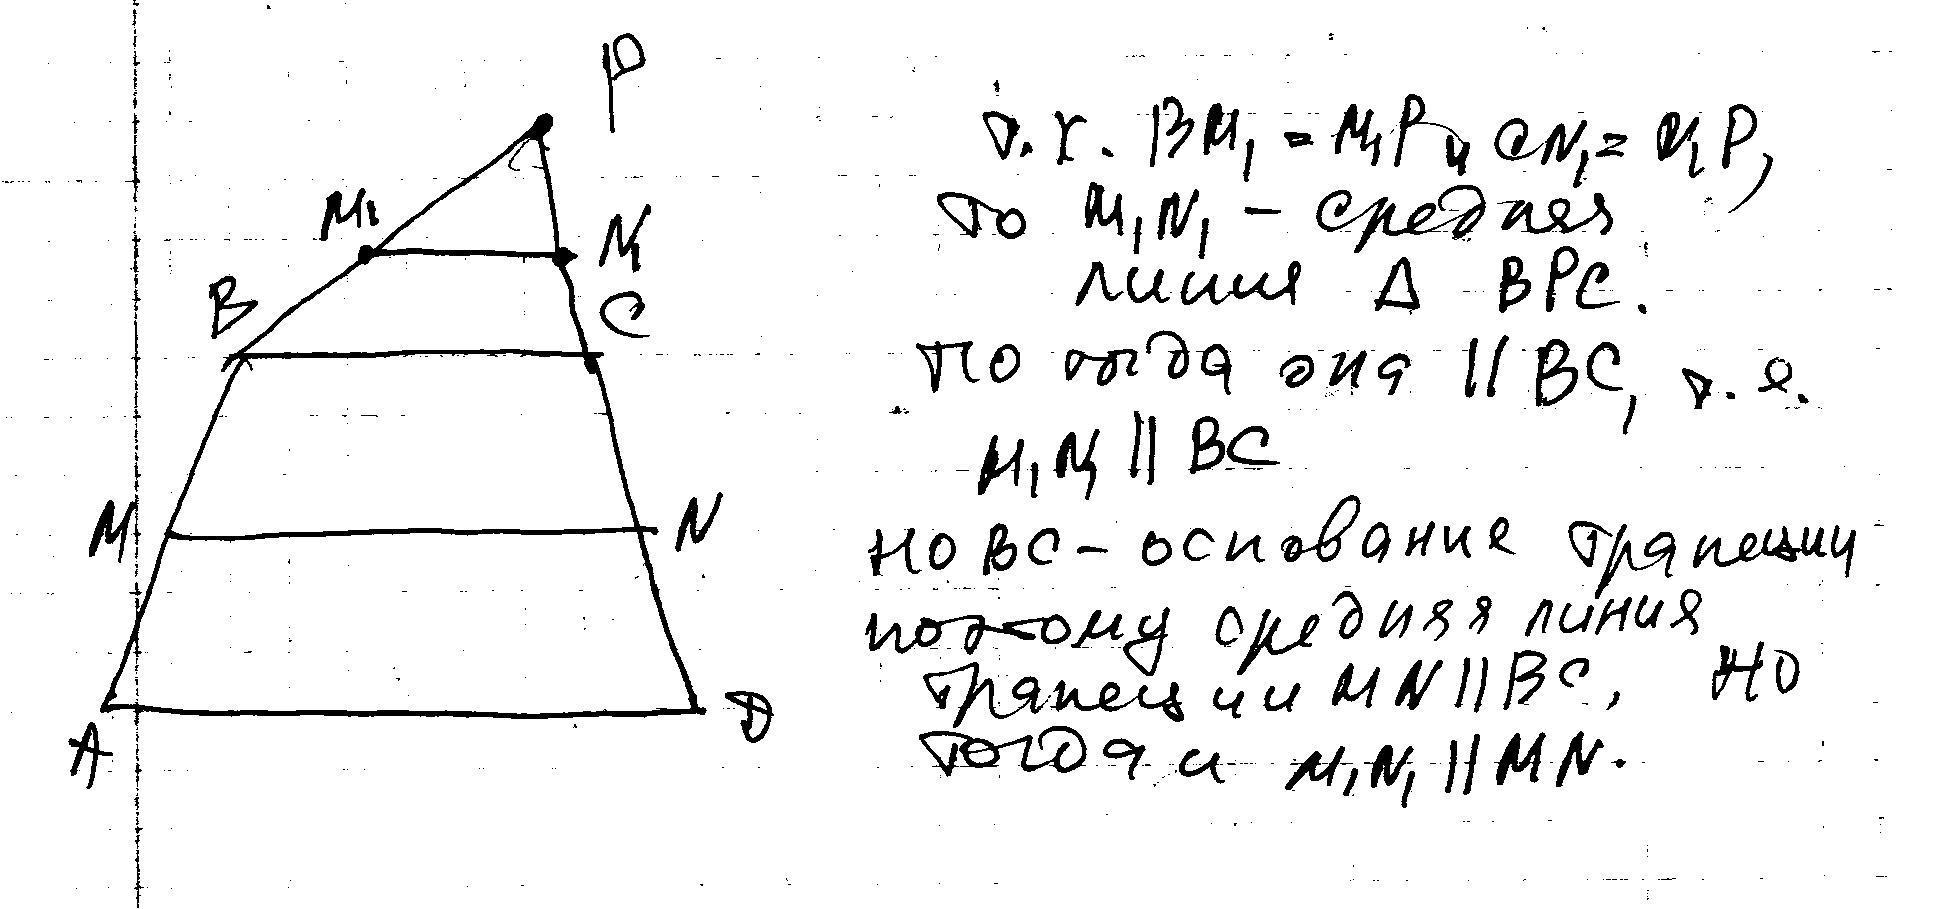 P
M₁
N₁
B
C
M
N
A
D
т.к. BM₁ = M₁P и CN₁ = N₁P,
то M₁N₁ – средняя
линия Δ BPC.
Но тогда она || BC, т.е.
M₁N₁ || BC
Но BC – основание трапеции
поэтому средняя линия
трапеции MN || BC, но
тогда и M₁N₁ || MN.